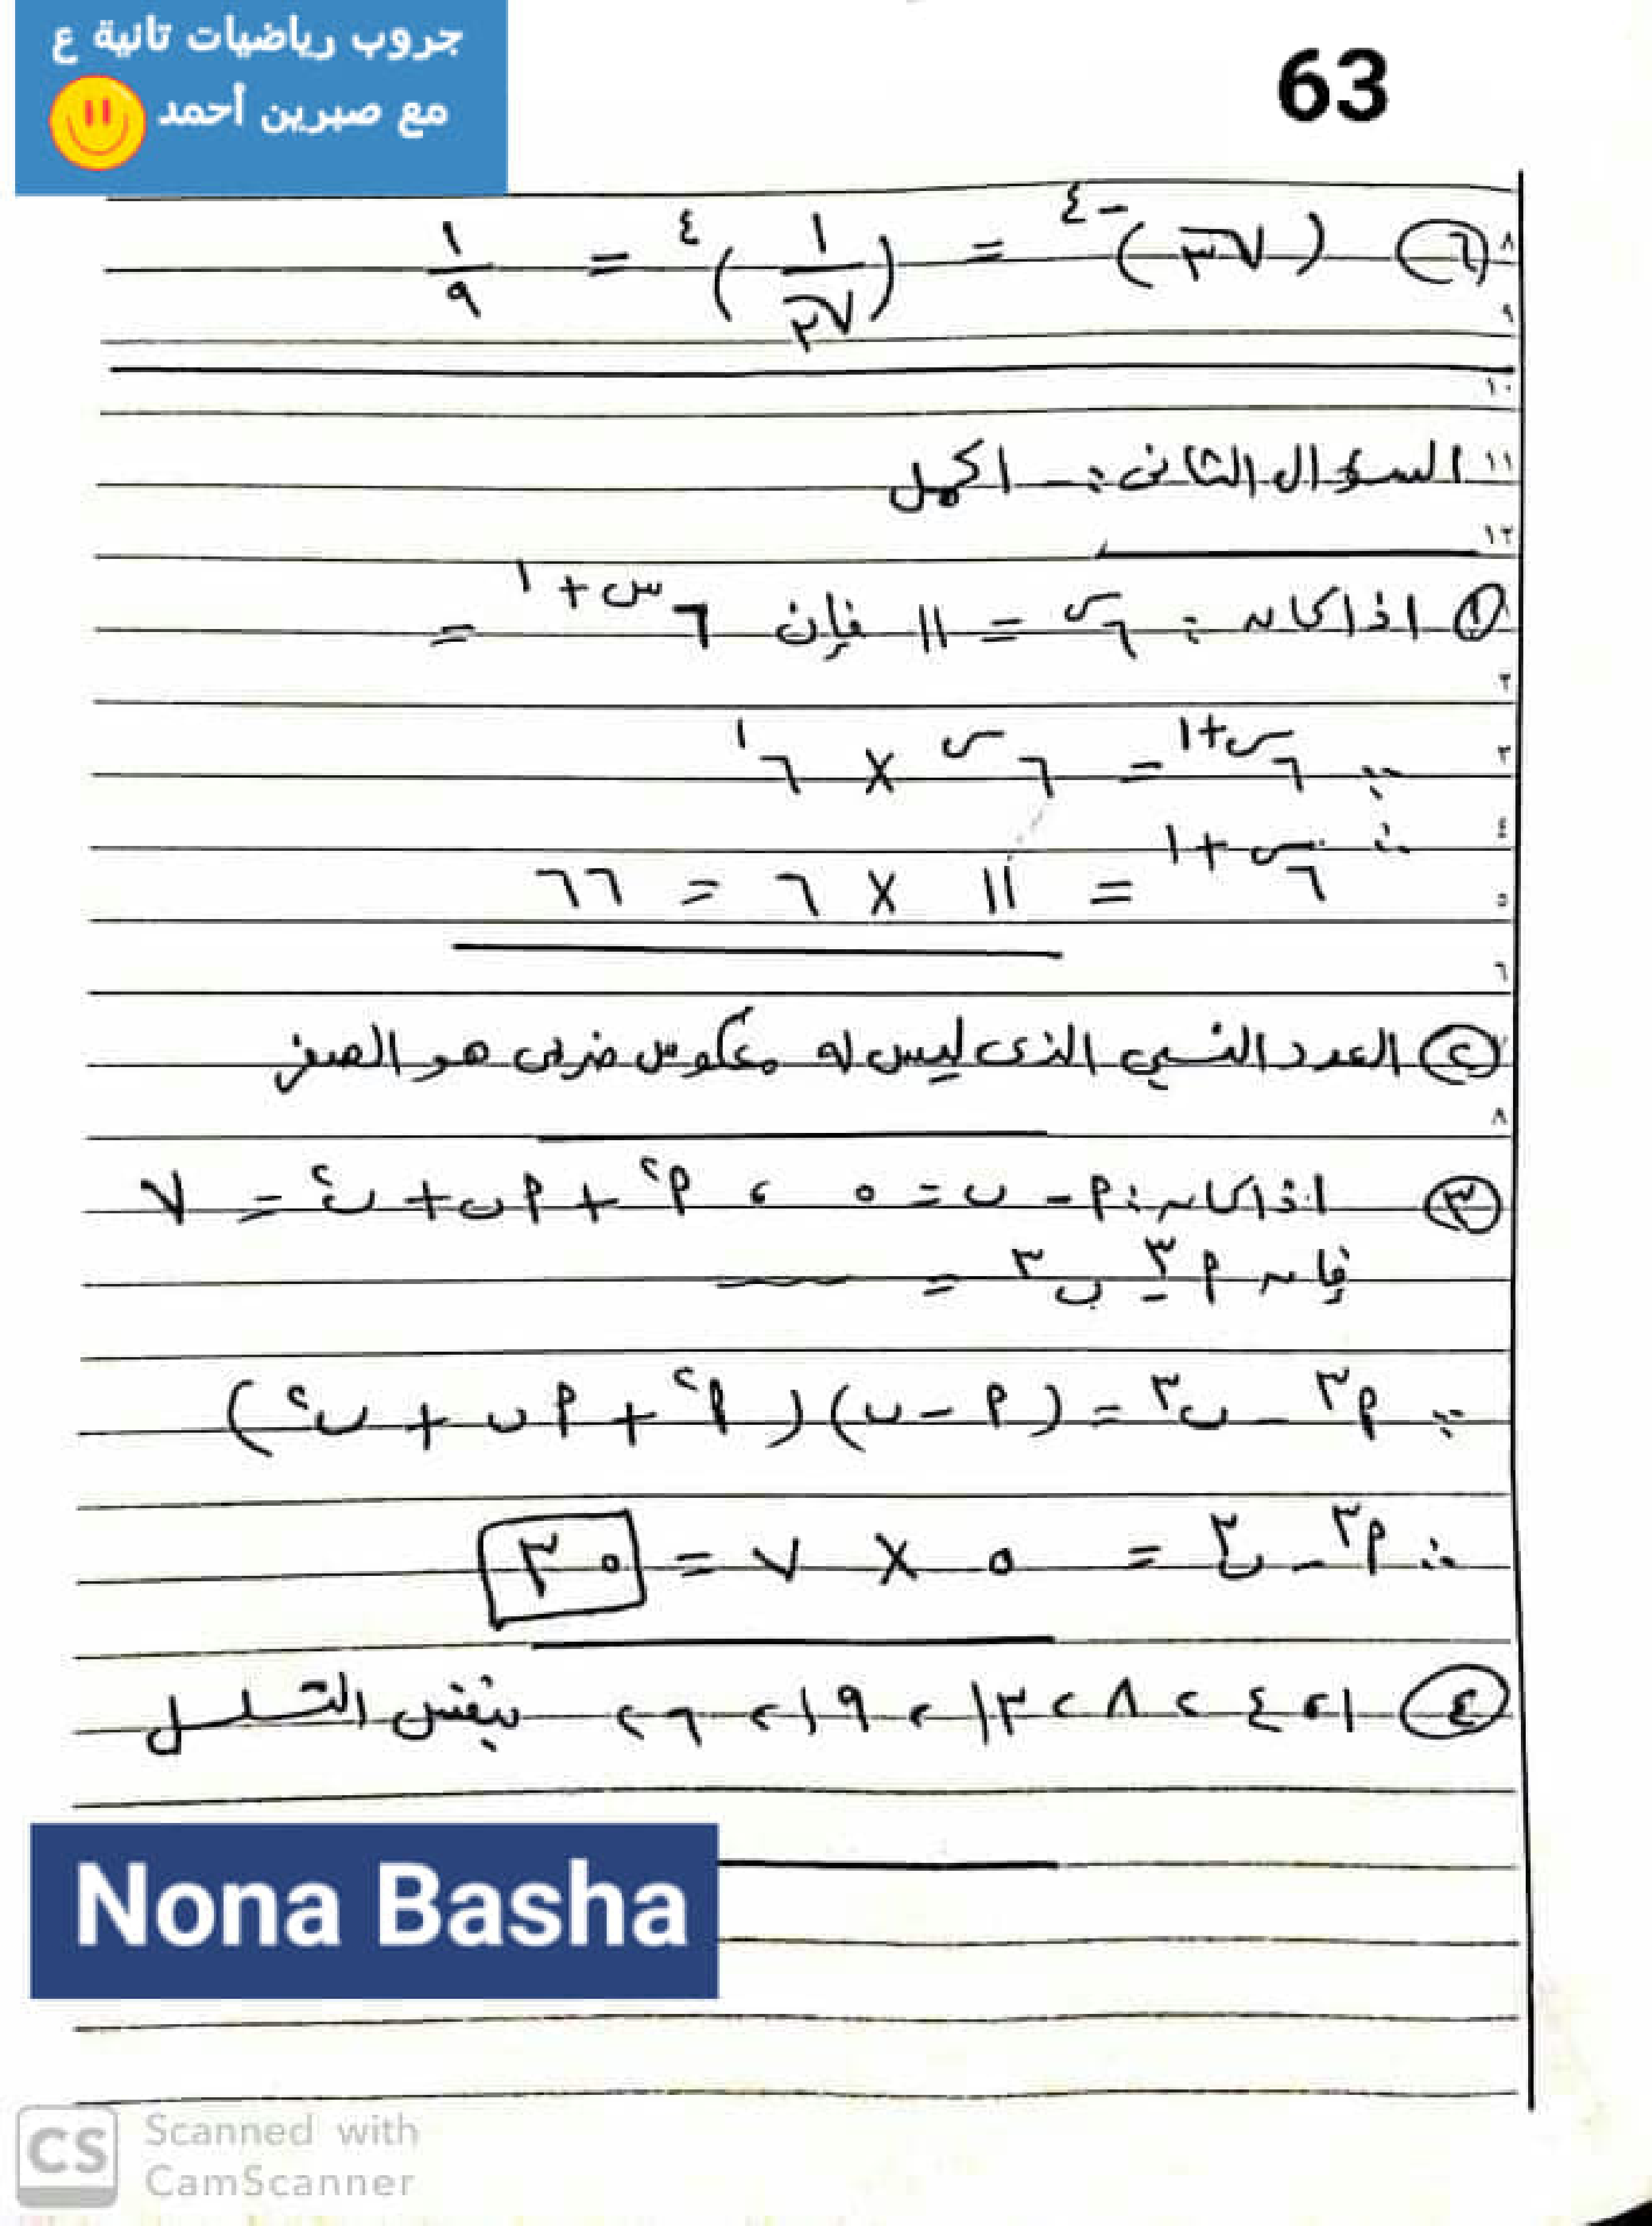 جروب رياضيات تانية ع
مع صبرين أحمد
63
٦ (√٣)^-٤ = (١/√٣)^٤ = ١/٩
السؤال الثانى :- اكمل
١ اذا كان : ٦^س = ١١ فإن ٦^س+١ =
∵ ٦^س+١ = ٦^س × ٦^١
∴ ٦^س+١ = ١١ × ٦ = ٦٦
٢ العدد النسبي الذى ليس له معكوس ضربى هو الصفر
٣ اذا كان : م - ب = ٥ ، م^٢ + م ب + ب^٢ = ٧
فإن م^٣ - ب^٣ =
∵ م^٣ - ب^٣ = (م - ب)(م^٢ + م ب + ب^٢)
∴ م^٣ - ب^٣ = ٥ × ٧ = ٣٥
٤ ١ ، ٤ ، ٨ ، ١٣ ، ١٩ ، ٢٦ بنفس التسلسل
Nona Basha
CS Scanned with
CamScanner